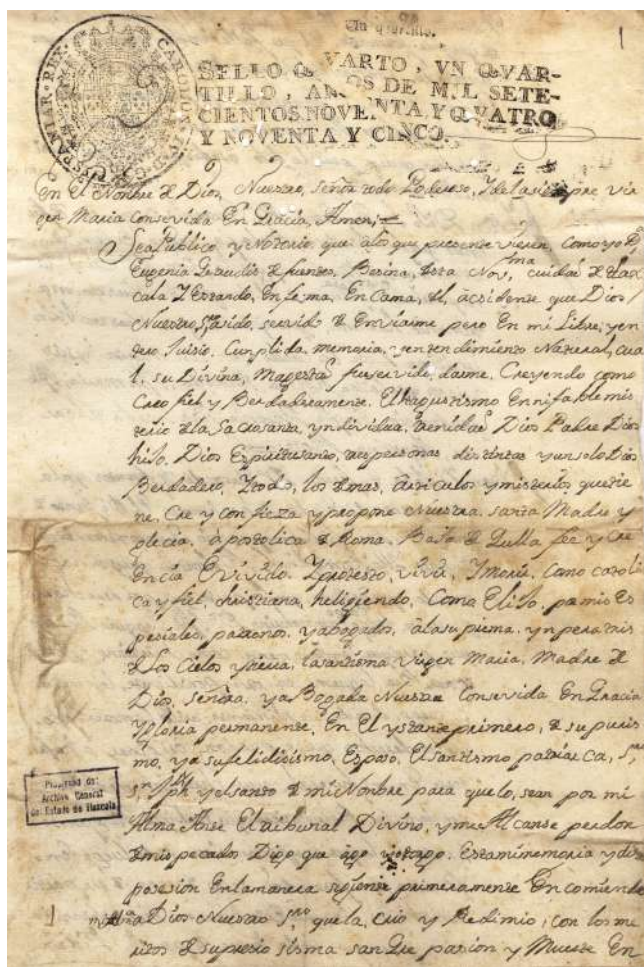 Un quartillo.
1
CAROLUS IV D G HISPANIAR REX
SELLO QVARTO, VN QVAR-
TILLO, AÑOS DE MIL SETE-
CIENTOS NOVENTA Y QVATRO
Y NOVENTA Y CINCO.
En El Nonbre de Dios, Nuestro, señor todo Poderoso, Y dela sienpre vir
gen Maria Consevida En Gracia, Amen,
Sea Publico y Notorio que alos que presente vieren, Como yo Dª
Eugenia de fuentes, Besina, desta Novma cuidad de tlax
cala Y Estando, Enferma, En Cama, del, acsidente que Dios
Nuestro, Sr asido, servido de Enviarme pero En mi Libre, yen
tero Juisio, Cunplida, memoria, yentendimiento Natural, cual
su Divina, Magestad fue servido, darme, Creyendo como
Creo fiel y Berdaderamente, El Augustismo Ennifable mis
terio dela Sacrosanta, yndividua, trenidad Dios Padre Dios
hijo, Dios Espiritusanto, trespersonas distintas yunsolo Dios
Berdadero, Ytodo, los demas, articulos ymisterios, quetie
ne, Cre y confieza y propone Nuestra, santa Madre y
glecia, apostolica de Roma, Bajo de Culla fee y Cre
encia E vivido, Y protesto, vivir, Y morir, Como catoli
ca y fiel, christiana, heligiendo, Como Elijo, pamis Es
pesiales, patronos, yabogados, alasupiema, ynperatris
de Los Cielos ytierra, lasantisima virgen Maria, Madre de
Dios, señora, yaBogada Nuestra Consevida En Gracia
Y gloria permanente, En El ystante primero, de supuris
mo, ya sufelidisismo, Esposo, El santismo patriarca, Sr
Sn Jph yelsanto de mi Nonbre para quelo, sean por mi
Alma Ante El tribunal Divino, yme Alcanse perdon
de mis pecados Digo que ago yotorgo, Estamimemoria y dis
posesion Enlamanera sigiente primeramente Encomiendo
mi alma a Dios Nuestro Sr quela, Crio y Redimio, con los me
ritos de supresiosisma sangre pasion y Muerte En
Propiedad del
Archivo General
del Estado de Tlaxcala
1